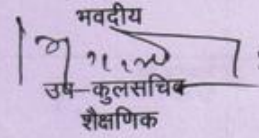 भवदीय
उप-कुलसचिव
शैक्षणिक